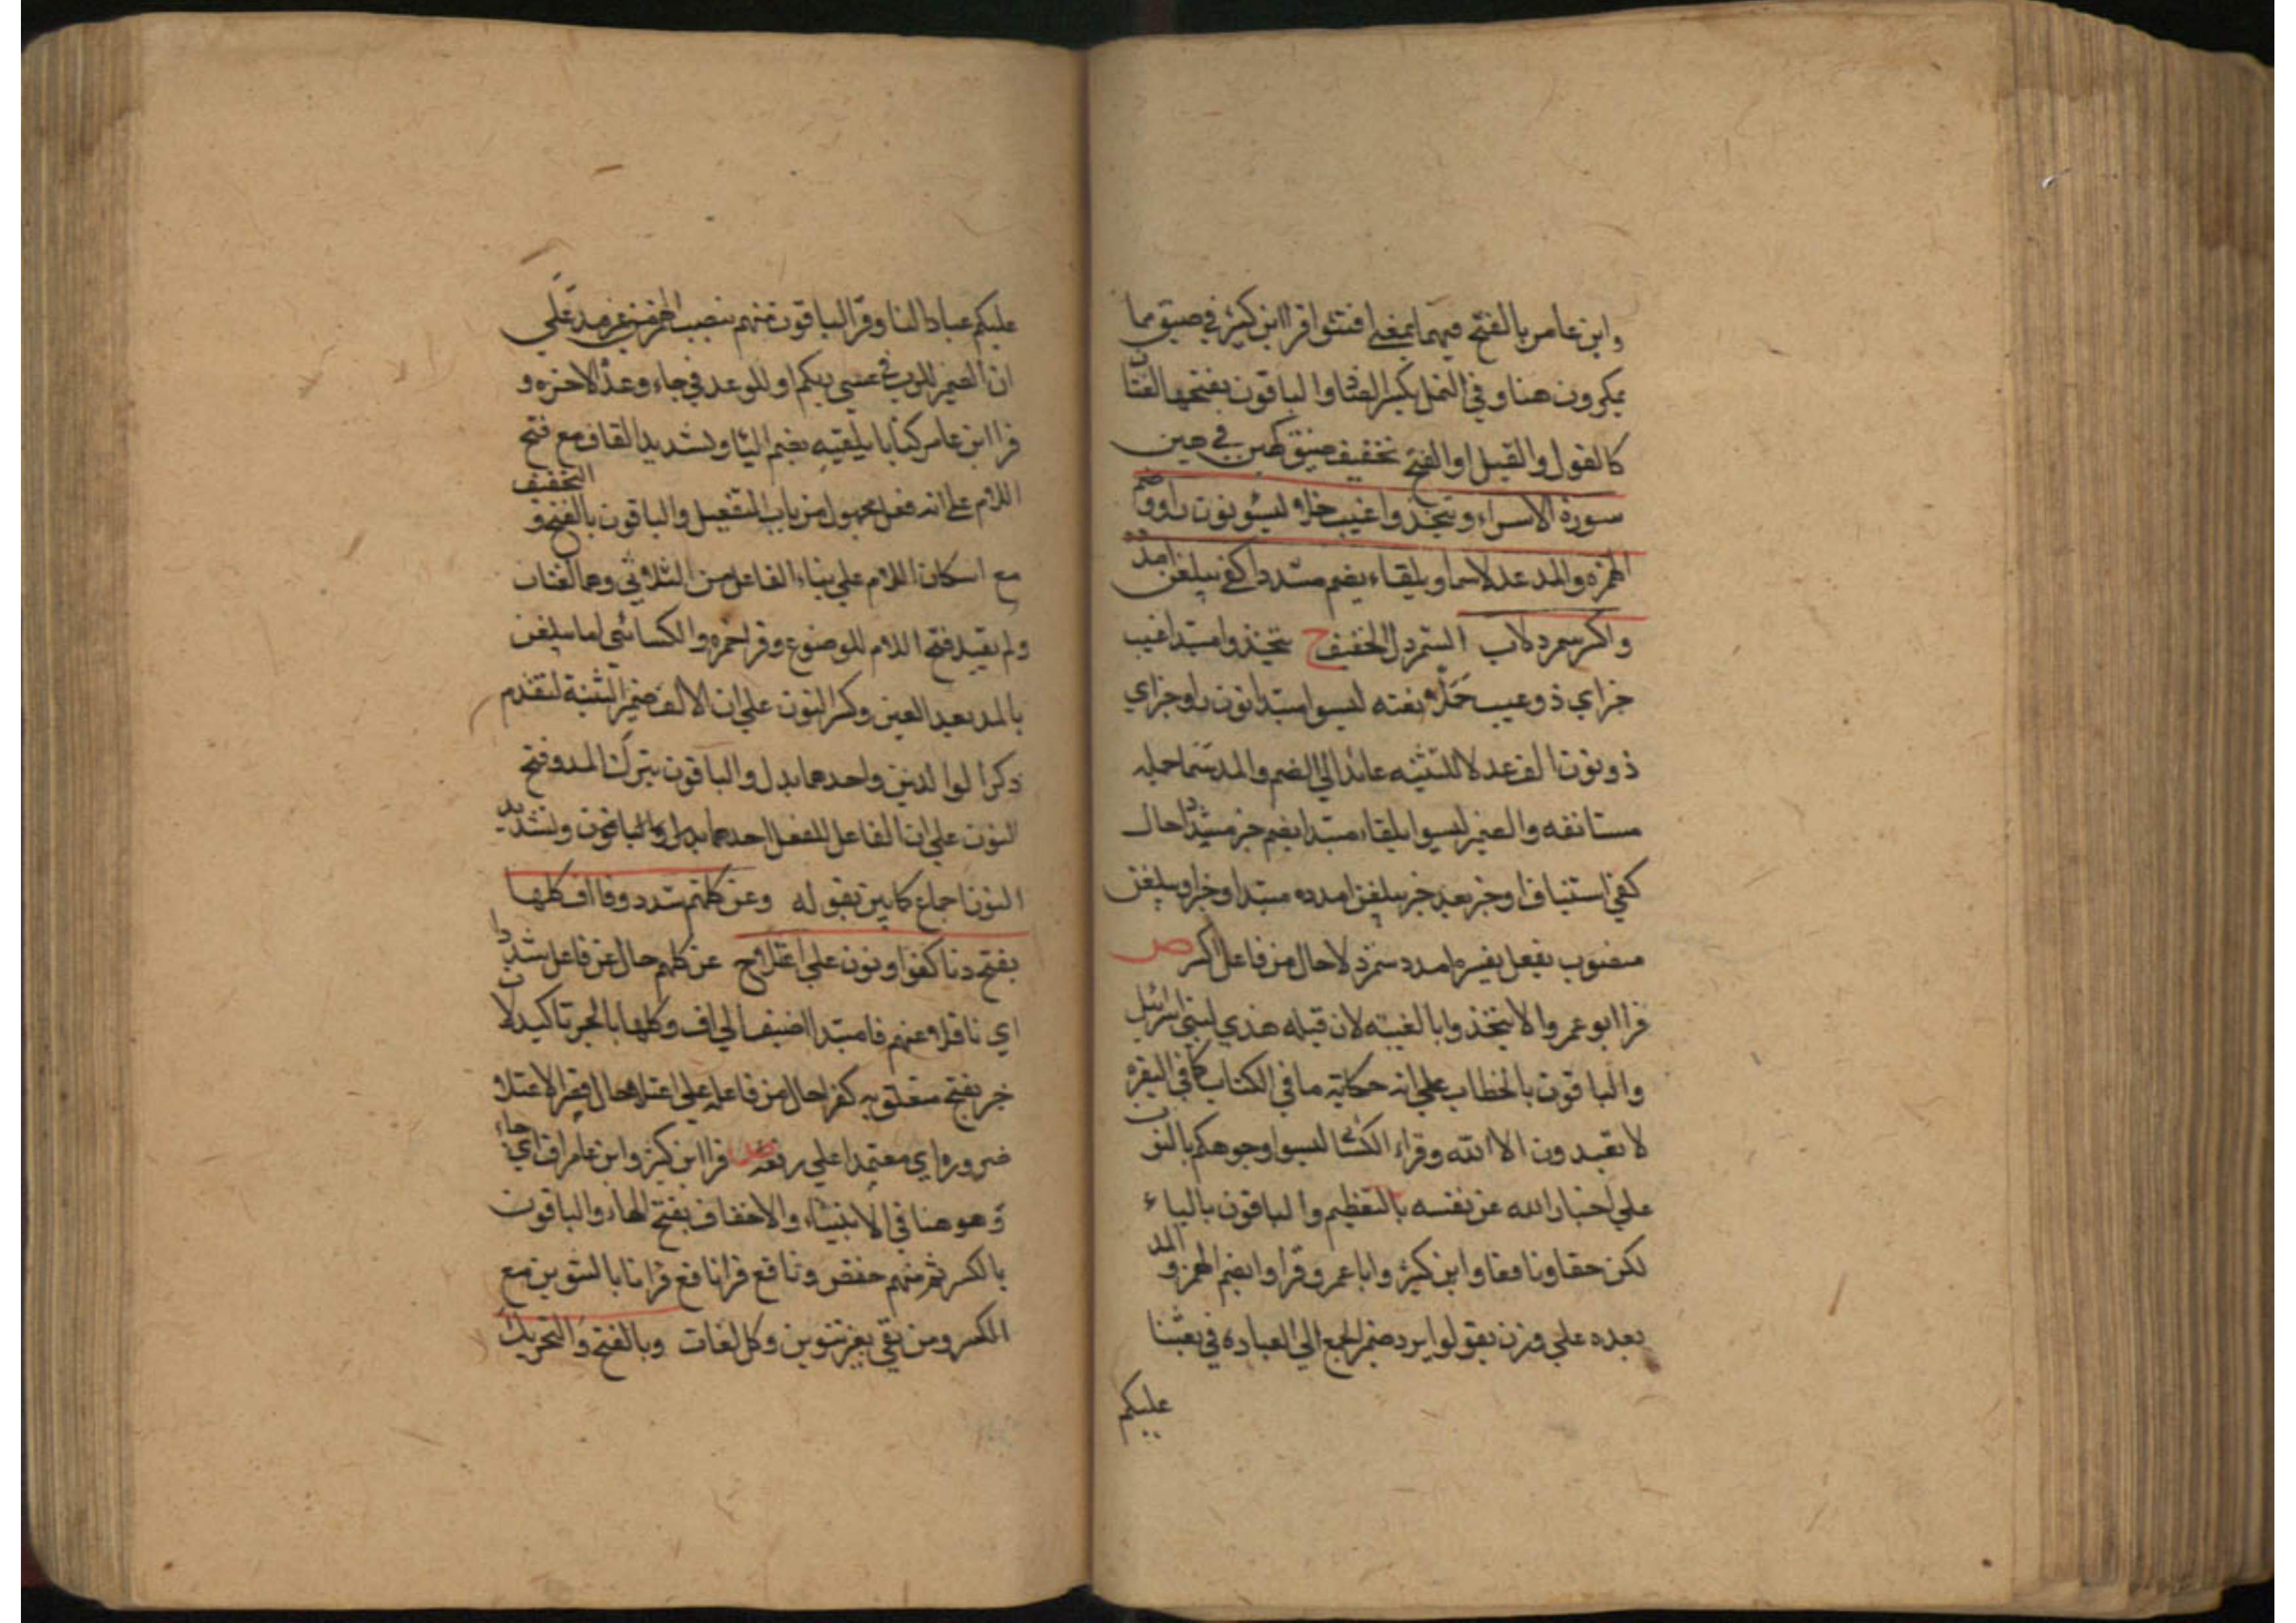 وابن عامر بالفتح فيهما بمعنى فتنوا قرا ابن كثير في ضيق مما
يمكرون هنا وفي النمل بكسر الضاد والباقون بفتحها لغتان
كالقول والقيل او الفتح تخفيف ضيق كهين في هين
سورة الاسراء ويتخذوا غيب حلا ليسو نون راو وضم
الهمز والمد عدلا سما ويلقاه يضم مشددا كفى يبلغن امدد
واكسر شمردلا ب الشمردل الخفيف ح يتخذوا مبتدا غيب
خبر اي ذو غيب حلا نعته ليسوا مبتدا نون راو خبر اي
ذو نون الف عدلا للتثنيه عائد الي الضم والمد سما حمله
مستانفه والضمير ليسوا يلقاه مبتدا يضم خبر مشددا حال
كفي استيناف او خبر بعد خبر يبلغن امدده مبتدا وخبر او يبلغن
منصوب بفعل يفسره امدد شمردلا حال من فاعل اكسر ص
قرا ابو عمرو الا يتخذوا بالغيبه لان قبله هدي لبني اسرائيل
والباقون بالخطاب علي انه حكاية ما في الكتاب كما في البقرة
لا تعبدون الا الله وقراء الكسائي ليسوا وجوهكم بالنون
علي اخبار الله عن نفسه بالتعظيم والباقون بالياء
لكن حفصا ونافعا وابن كثير وابا عمرو قراوا بضم الهمز والمد
بعده علي وزن يقولوا يرد ضمير الجمع الي العباد في بعثنا
عليكم
عليكم عبادا لنا وقرا الباقون منهم بنصب الهمز من غير مد علي
ان الضمير للرب في عسي ربكم او للوعد في جاء وعد الاخرة و
قرا ابن عامر كتابا يلقيه بضم اليا وتشديد القاف مع فتح
اللام علي انه فعل مجهول من باب التفعيل والباقون بالفتح والتخفيف
مع اسكان اللام علي بناء الفاعل من الثلاثي وهما لغتان
ولم يقيد فتح اللام للوضوع وقرا حمزه والكسائي اما يبلغن
بالمد بعد الغين وكسر النون علي ان الالف ضمير التثنية لتقدم
ذكر الوالدين واحدهما بدل والباقون بترك المد وفتح
النون علي ان الفاعل للفعل احدهما وتشديد
النون اجماع كابين بقوله وعن كلهم شدد وفا اف كلها
بفتح دنا كفوا ونون علي اعتلا ح عن كلهم حال عن فاعل شدد
اي ناقلا عنهم فا مبتدا اضيف الي اف وكلها بالجر تاكيد لا
خبر بفتح متعلق به كفوا حال من فاعله علي اعتلا حال قصر الاعتلا
ضرورة اي معتمدا علي رفعة ص قرا ابن كثير وابن عامر اف اي جاء
وهو هنا في الانبياء والاحقاف بفتح الفاء والباقون
بالكسر ثم منهم حفص ونافع قرا نافع قرانا بالتنوين مع
الكسر ومن بقي بغير تنوين وكل لغات وبالفتح والتحريك